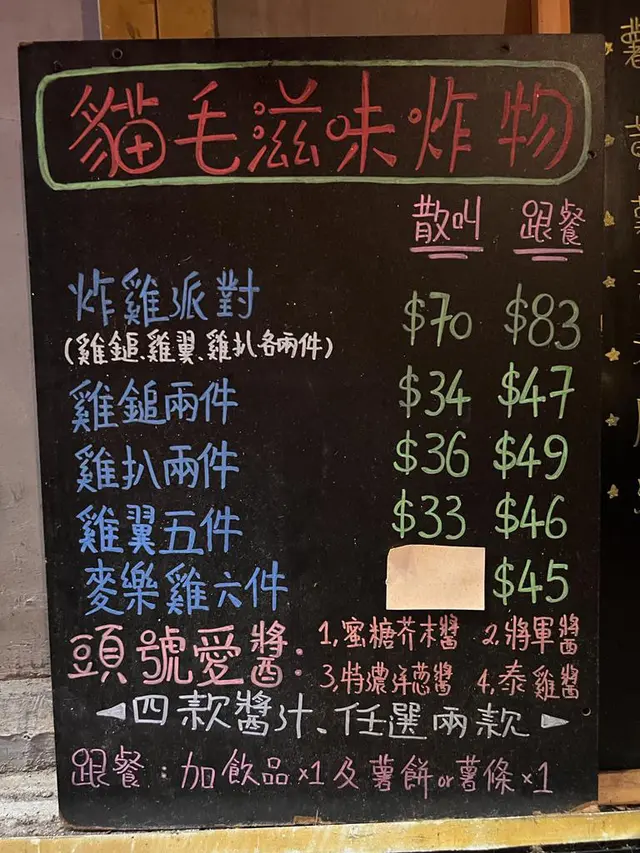 貓毛滋味炸物
散叫 跟餐
炸雞派對 $70 $83
(雞鎚、雞翼、雞扒各兩件)
雞鎚兩件 $34 $47
雞扒兩件 $36 $49
雞翼五件 $33 $46
麥樂雞六件 $45
頭號愛醬: 1,蜜糖芥末醬 2,將軍醬
3,特濃洋葱醬 4,泰雞醬
四款醬汁、任選兩款
跟餐:加飲品x1及薯餅or薯條x1